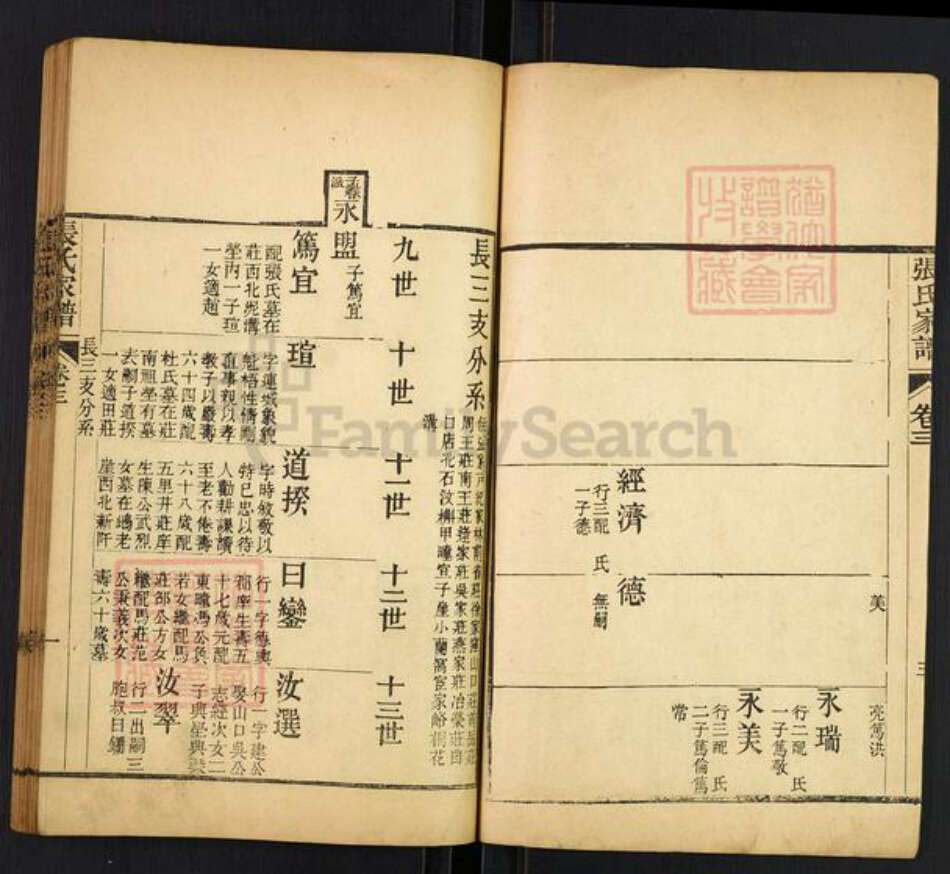 張氏家譜
卷三
三
美
亮篤洪
經濟
行三配 氏
一子德
德
無嗣
永瑞
行二配 氏
一子篤敬
永美
行三配 氏
二子篤倫篤
常
長三支分系
口店北石汶
溝
九世
十世
十一世
十二世
十三世
永盟
子篤宜
篤宜
配張氏墓在
莊西北泥溝
塋內一子瑄
一女適趙
瑄
字蓮城象貌
魁梧性情剛
直事親以孝
教子以嚴壽
六十四歲配
杜氏墓在莊
南祖塋有墓
表嗣子道揆
一女適田莊
道揆
字時敘敬以
持己忠以待
人勸耕課讀
至老不倦壽
六十八歲配
五里井莊庠
生陳公武烈
女墓在嶋老
崖西北新阡
曰鑾
行一字
郡庠生壽五
十七歲元配
東疃馮公負
若女繼配馬
莊部公方女
繼配馬莊范
公秉義次女
壽六十歲墓
汝選
行一字建公
娶山口吳公
志經次女二
子典星典
汝翠
行二出嗣三
胞叔曰鐇
張氏家譜
卷三
長三支分系
一
FamilySearch